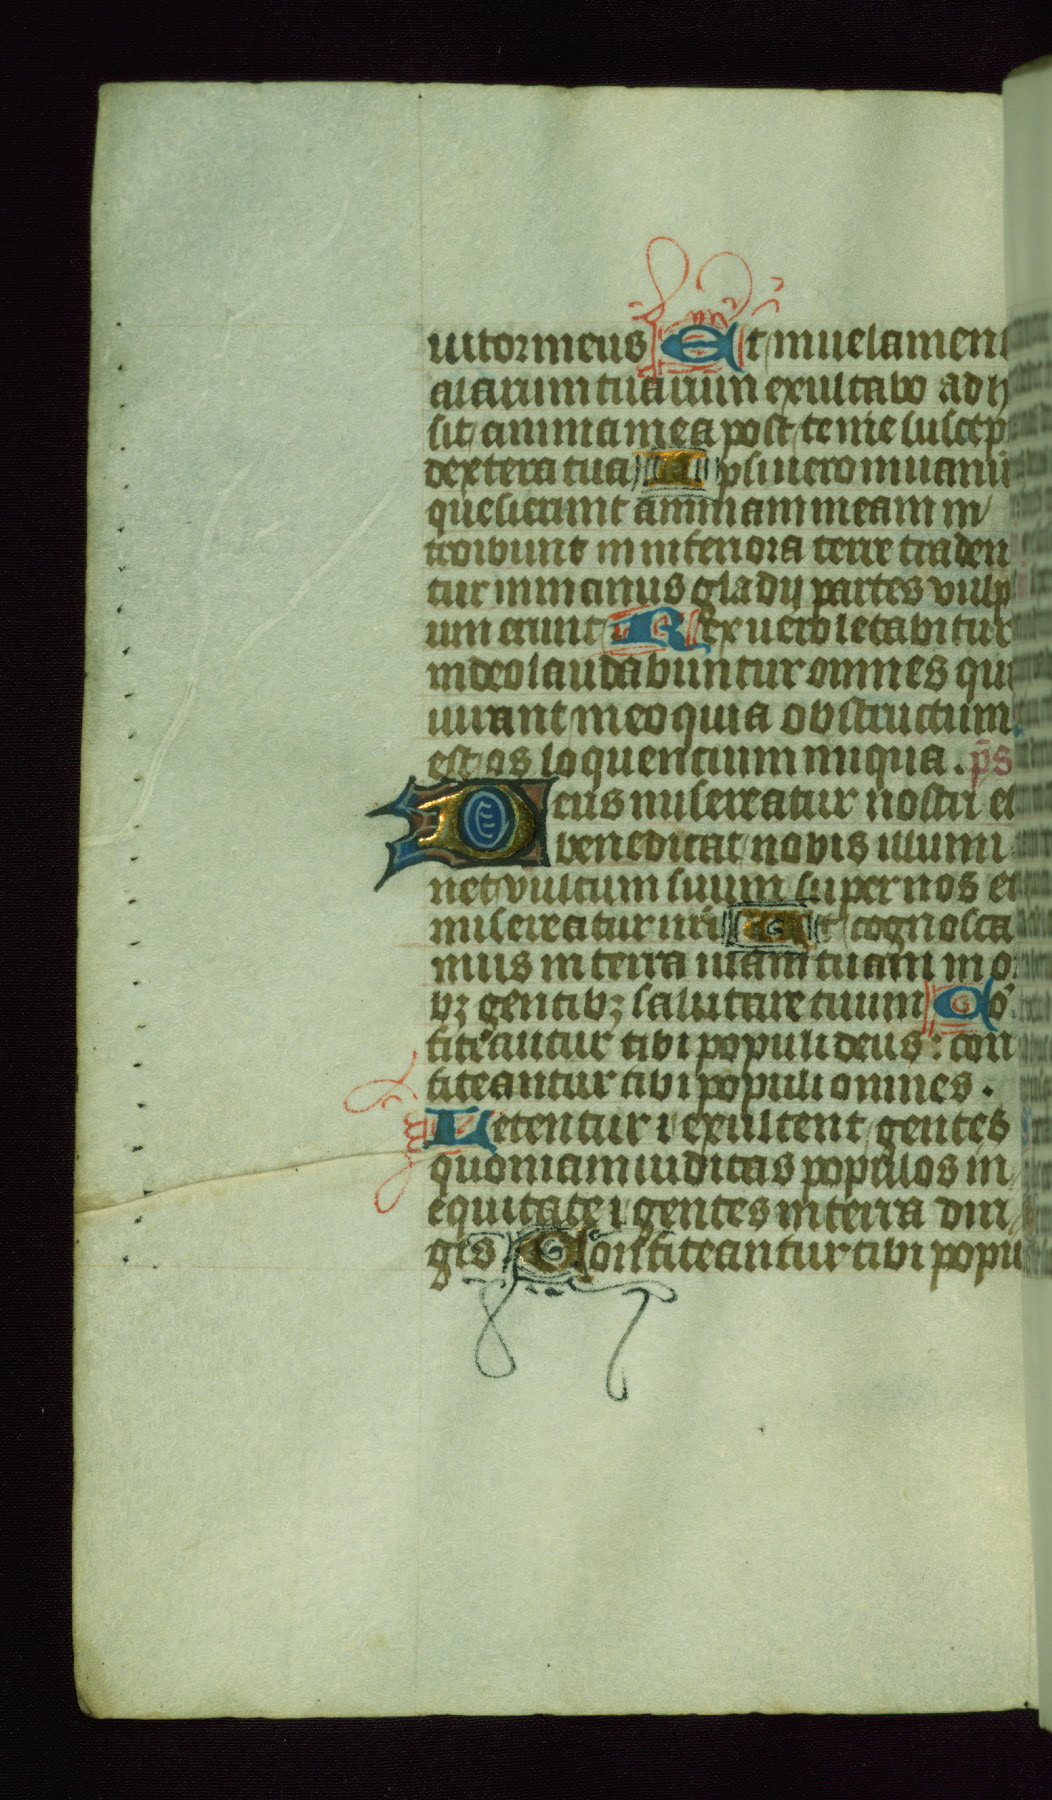 iutor meus Et in uelament
alarum tuarum exultabo adh
sit anima mea post te me suscep
dextera tua Ipsi uero in uanu
quesierunt animam meam in
troibunt in inferiora terre traden
tur in manus gladij partes vulp
ium erunt Rex uero letabitur
in deo laudabuntur omnes qui
iurant in eo quia obstructum
est os loquencium iniqua . ps
Deus misereatur nostri et
benedicat nobis illumi
net vultum suum super nos et
misereatur nri Et cognosca
mus in terra uiam tuam in o
bꝫ gentibꝫ salutare tuum Co
fiteantur tibi populi deus : con
fiteantur tibi populi omnes .
Letentur ⁊ exultent gentes
quoniam iudicas populos in
equitate ⁊ gentes in terra diri
gis Confiteantur tibi popu